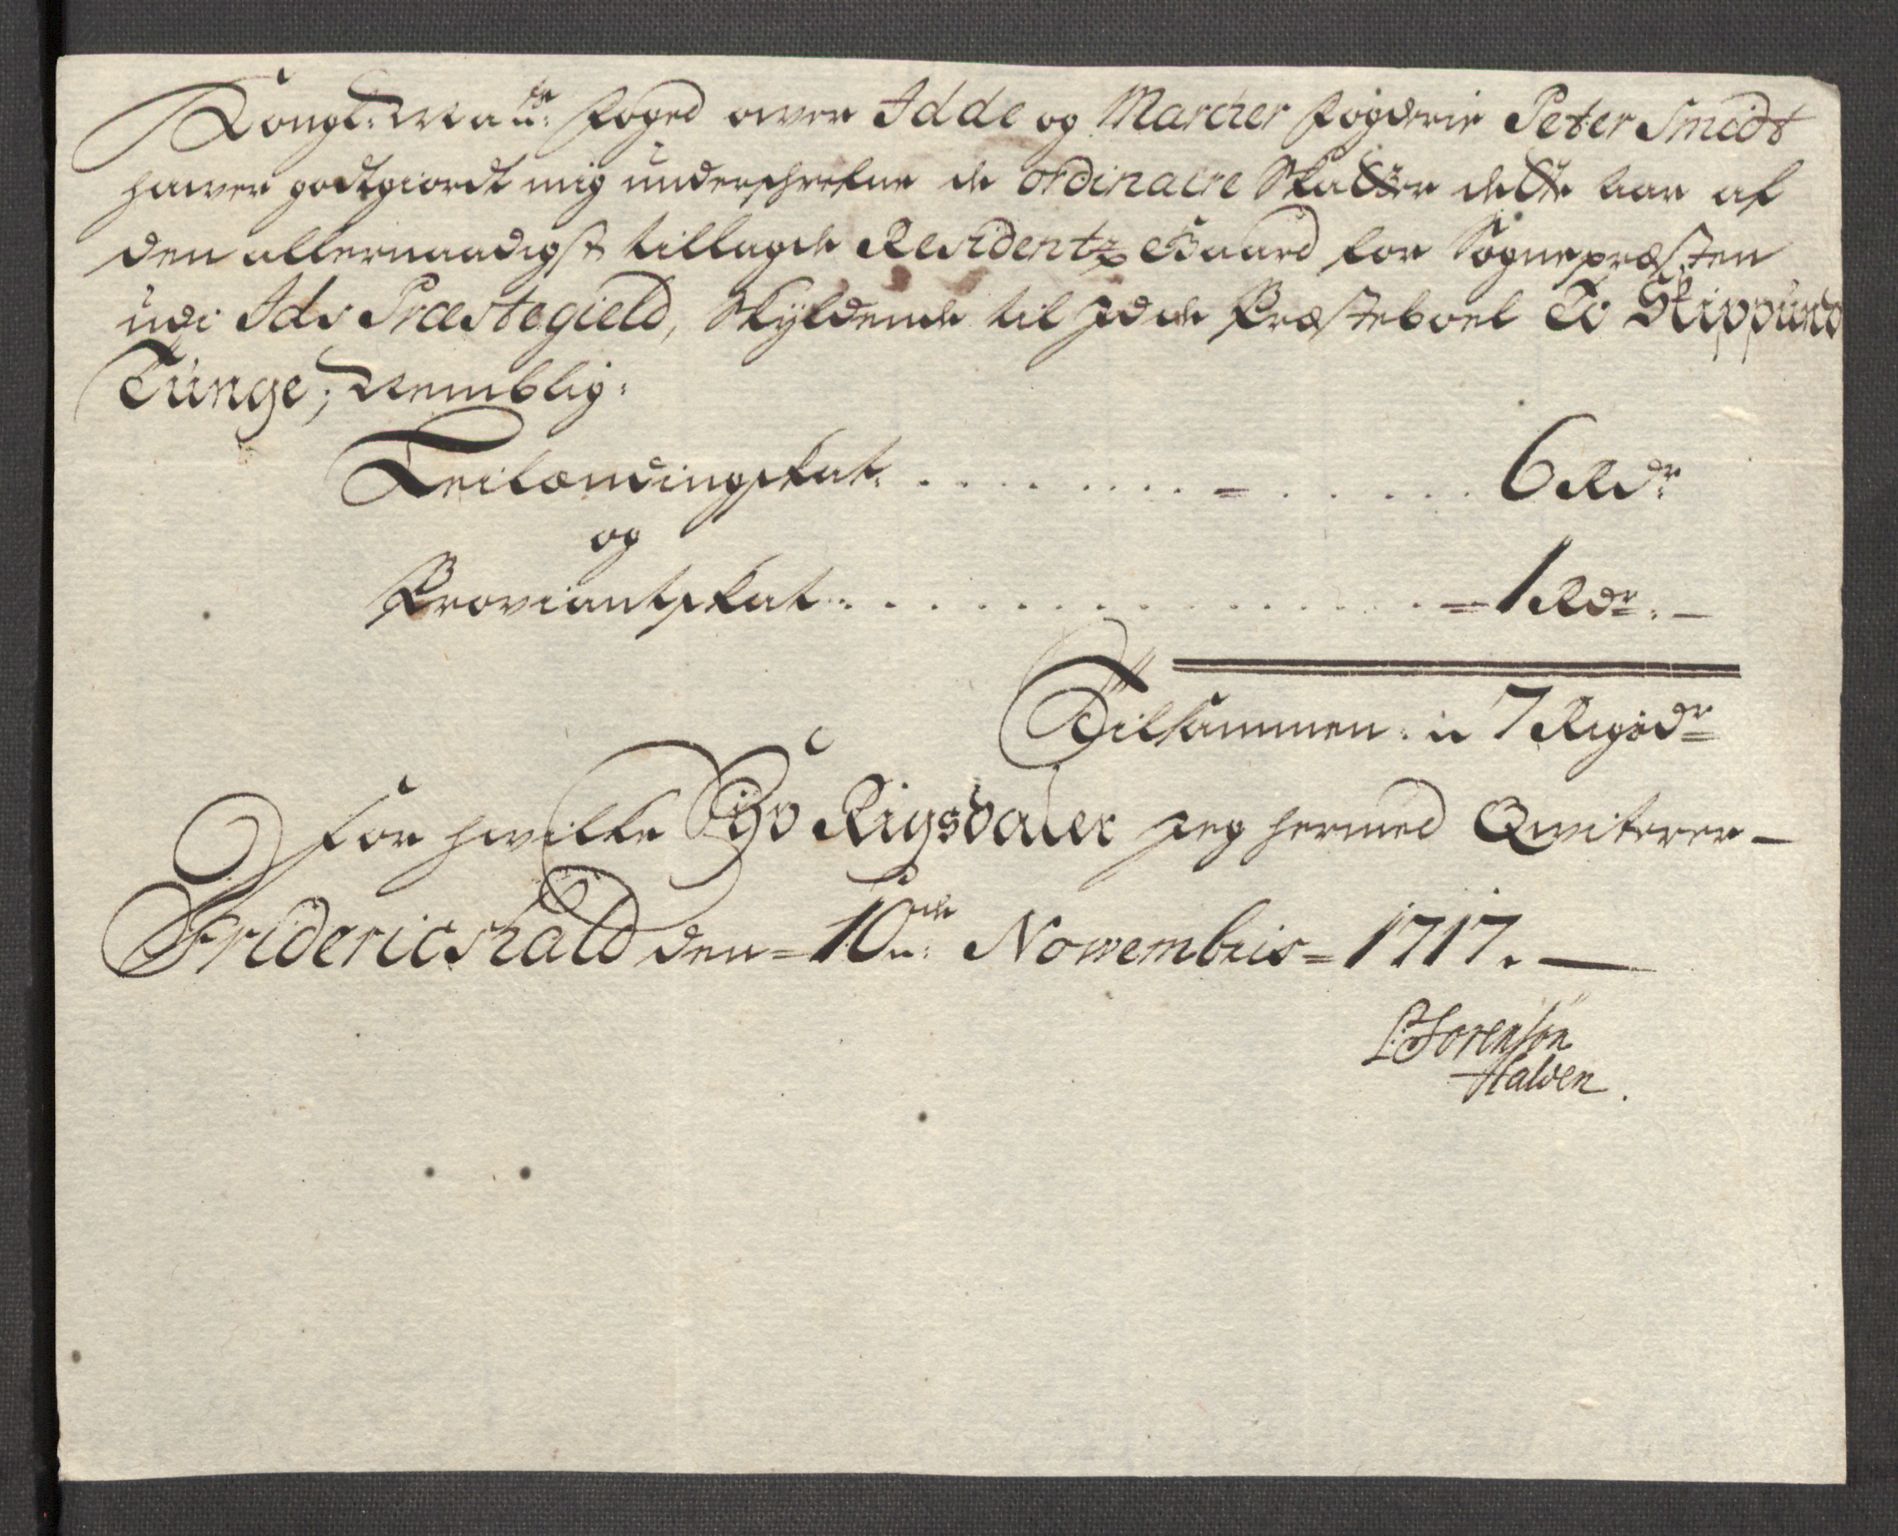 Kongl: Maÿts: foged ower Idde og Marcher fogderie Peter Smidt
hawer godtgiordt mig underschrefne de ordinaire Skatter dette Aar af
den allernaadigst tillagde Residentz Gaard for Sognepræsten
udi Ids Præstegield, Skyldende til Idde Præsteboel To Skippund
Tunge; Nemblig:
Leilændingskat: . . . . . . . . . . . . . . 6 Rdr
og
Proviantskat: . . . . . . . . . . . . . . = 1 Rdr: —
Tilsammen: = 7 Rigsdr
For hwilke Syv Rigsdaler jeg hermed Qwiterer —
Fridericshald den = 10de: Nowembris = 1717. —
P: Sorenson
Halden.